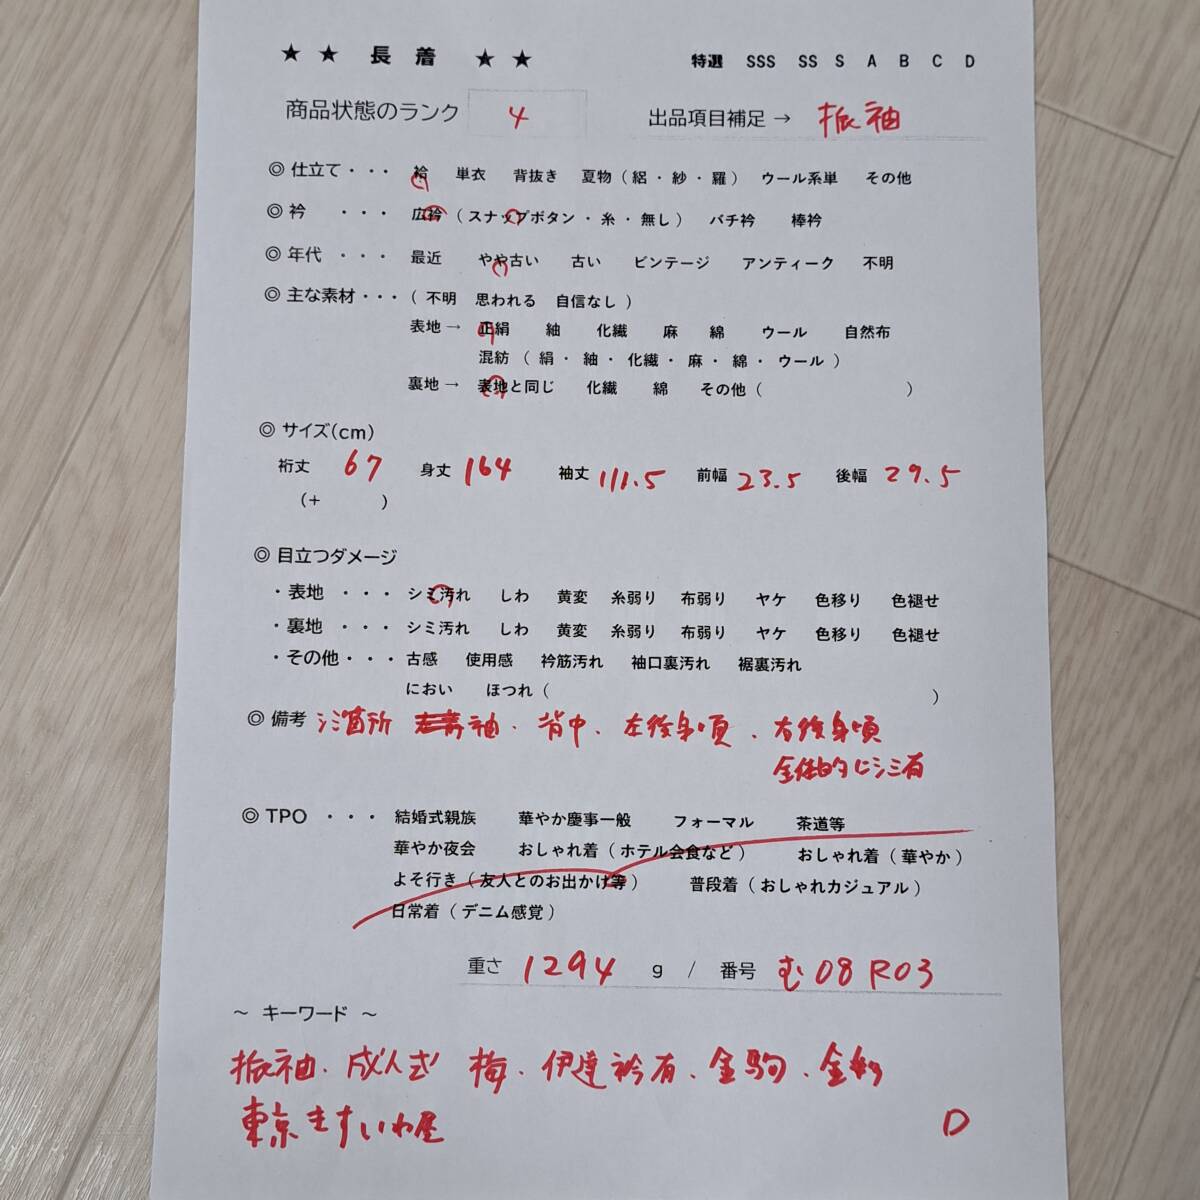 ★ ★ 長 着 ★ ★ 特選 SSS SS S A B C D
商品状態のランク 4 出品項目補足 → 振袖
◎ 仕立て・・・ 袷 単衣 背抜き 夏物（絽・紗・羅） ウール系単 その他
◎ 衿 ・・・ 広衿（スナップボタン・糸・無し） バチ衿 棒衿
◎ 年代 ・・・ 最近 やや古い 古い ビンテージ アンティーク 不明
◎ 主な素材・・・（ 不明 思われる 自信なし ）
表地 → 正絹 紬 化繊 麻 綿 ウール 自然布
混紡（ 絹・紬・化繊・麻・綿・ウール ）
裏地 → 表地と同じ 化繊 綿 その他（ ）
◎ サイズ(cm)
裄丈 67 身丈 164 袖丈 111.5 前幅 23.5 後幅 29.5
（+ ）
◎ 目立つダメージ
・表地 ・・・ シミ汚れ しわ 黄変 糸弱り 布弱り ヤケ 色移り 色褪せ
・裏地 ・・・ シミ汚れ しわ 黄変 糸弱り 布弱り ヤケ 色移り 色褪せ
・その他・・・ 古感 使用感 衿筋汚れ 袖口裏汚れ 裾裏汚れ
におい ほつれ（ ）
◎ 備考 シミ箇所 袖・背中・左後身頃・右後身頃
全体的にシミ有
◎ TPO ・・・ 結婚式親族 華やか慶事一般 フォーマル 茶道等
華やか夜会 おしゃれ着（ホテル会食など） おしゃれ着（華やか）
よそ行き（友人とのお出かけ等） 普段着（おしゃれカジュアル）
日常着（デニム感覚）
重さ 1294 g / 番号 む08R03
～ キーワード ～
振袖・成人式 梅・伊達衿有・金駒・金彩
東京ますいわ屋 D